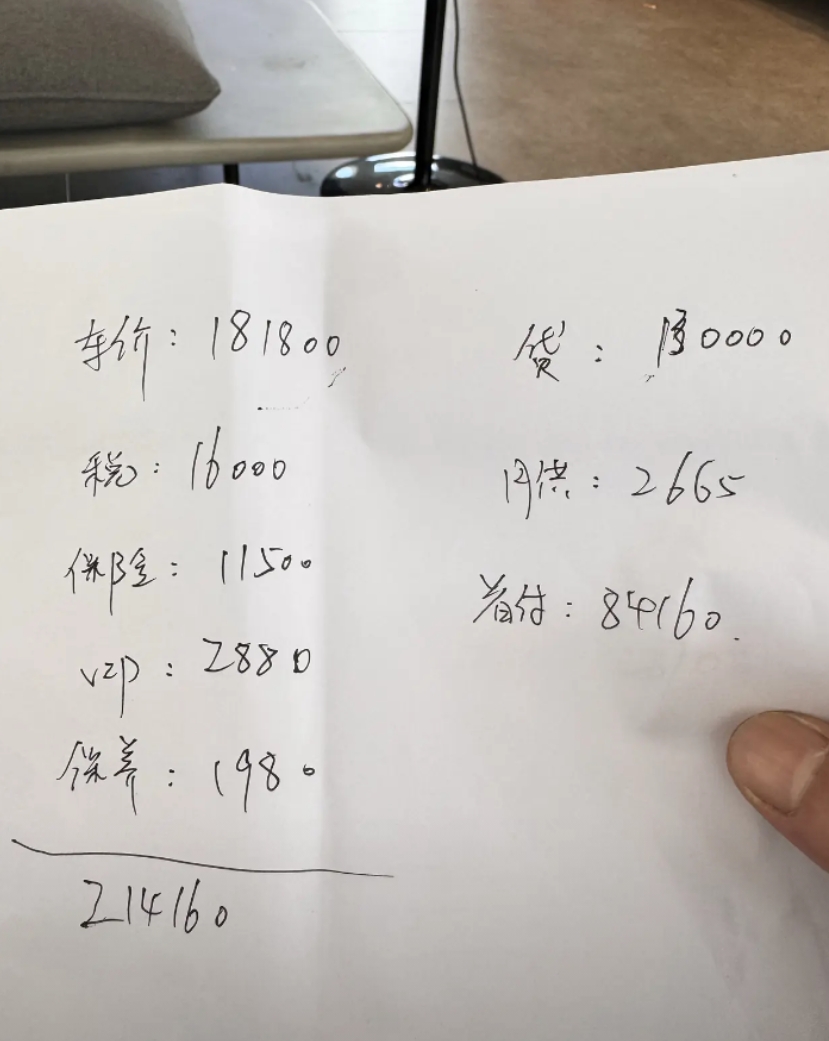 车价：181800
税：16000
保险：11500
VIP：2880
保养：1980
214160
贷：130000
月供：2665
首付：84160.